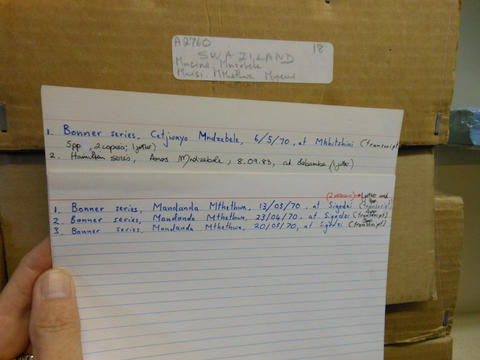 A2760 18
SWAZILAND
Mncina, Mndzebele
Mavsi Mthethwa
1. Bonner series, Cetjwayo Mndzebele, 6/5/70, at Mkhitshini (transcript)
5pp, 2 copies; (juffer)
2. Hamilton series, Amos Mndzebele, 8.09.83, at
(2 versions)
1. Bonner series, Mandanda Mthethwa, 13/03/70, at Sigodzi (transcript)
2. Bonner series, Mandanda Mthethwa, 23/04/70, at Sigdzi (transcript)
3. Bonner series, Mandanda Mthethwa, 20/05/70, at Sigdzi (transcript)